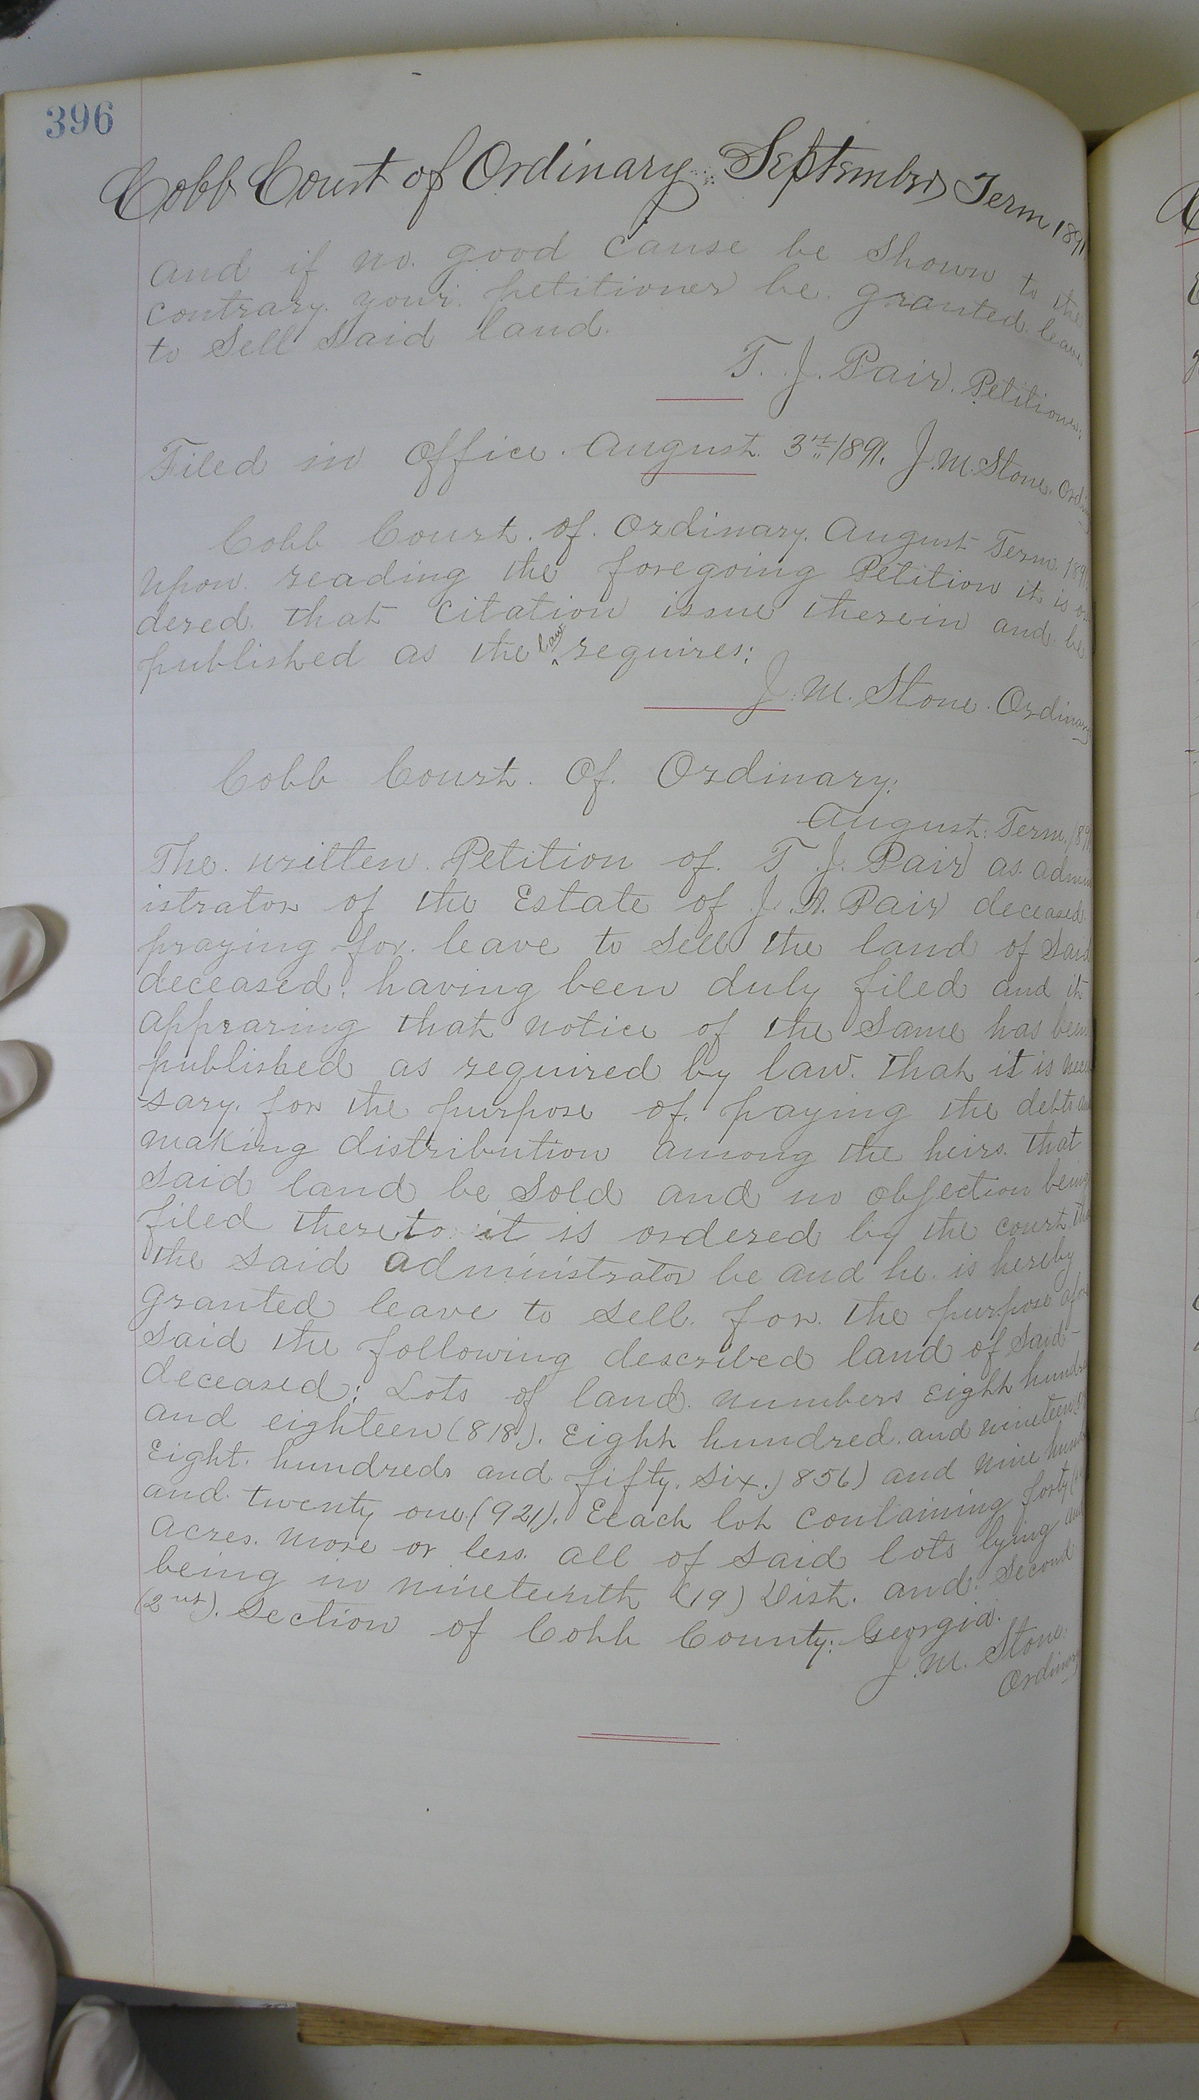 396
Cobb Court of Ordinary September Term 1891
and if no good cause be shown to the
contrary your petitioner be granted leave
to Sell Said land.
T. J. Pair. Petitioner.
Filed in Office. August 3rd 1891. J. M. Stone. Ord
Cobb Court of Ordinary. August Term 189
Upon reading the foregoing Petition it is or
dered that Citation issue therein and be
published as the law requires:
J. M. Stone. Ordinary
Cobb Court Of Ordinary.
August Term 189
The written Petition of T J. Pair as admin
istrator of the Estate of J. A. Pair deceased
praying for leave to Sell the land of Said
deceased: having been duly filed and it
appearing that notice of the Same has been
published as required by law. That it is neces
sary for the purpose of paying the debts and
making distribution among the heirs. that
Said land be Sold and no objection being
filed thereto it is ordered by the court
the said administrator be and he is hereby
granted leave to Sell. for the purpose afor
said the following described land of Said
deceased: Lots of land. numbers Eight hundred
and eighteen (818). Eight hundred and nineteen
Eight hundred and fifty. Six. ) 856) and nine hund
and twenty one (921). Eeach lot Containing forty
Acres. more or less all of Said lots lying and
being in nineteenth (19) Dist. and Second
(2nd). Section of Cobb County: Georgia.
J. M. Stone.
Ordinary